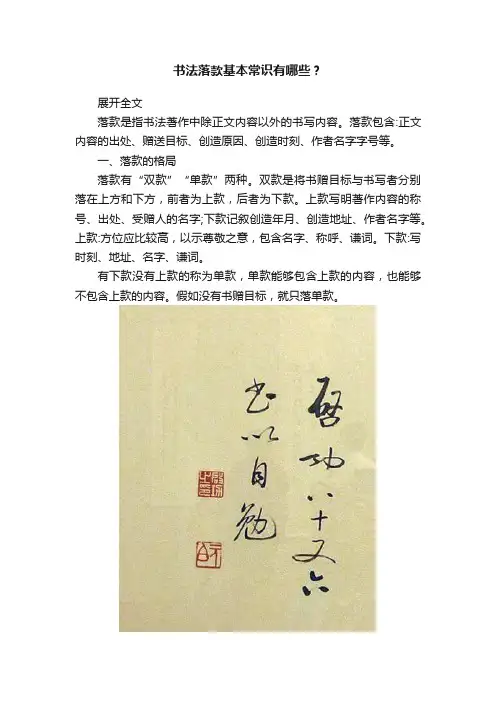 书法落款基本常识有哪些？
展开全文
落款是指书法著作中除正文内容以外的书写内容。落款包含:正文
内容的出处、赠送目标、创造原因、创造时刻、作者名字字号等。
一、落款的格局
落款有“双款”“单款”两种。双款是将书赠目标与书写者分别
落在上方和下方，前者为上款，后者为下款。上款写明著作内容的称
号、出处、受赠人的名字;下款记叙创造年月、创造地址、作者名字等。
上款:方位应比较高，以示尊敬之意，包含名字、称呼、谦词。下款:写
时刻、地址、名字、谦词。
有下款没有上款的称为单款，单款能够包含上款的内容，也能够
不包含上款的内容。假如没有书赠目标，就只落单款。
啓功八十又六
书以自勉